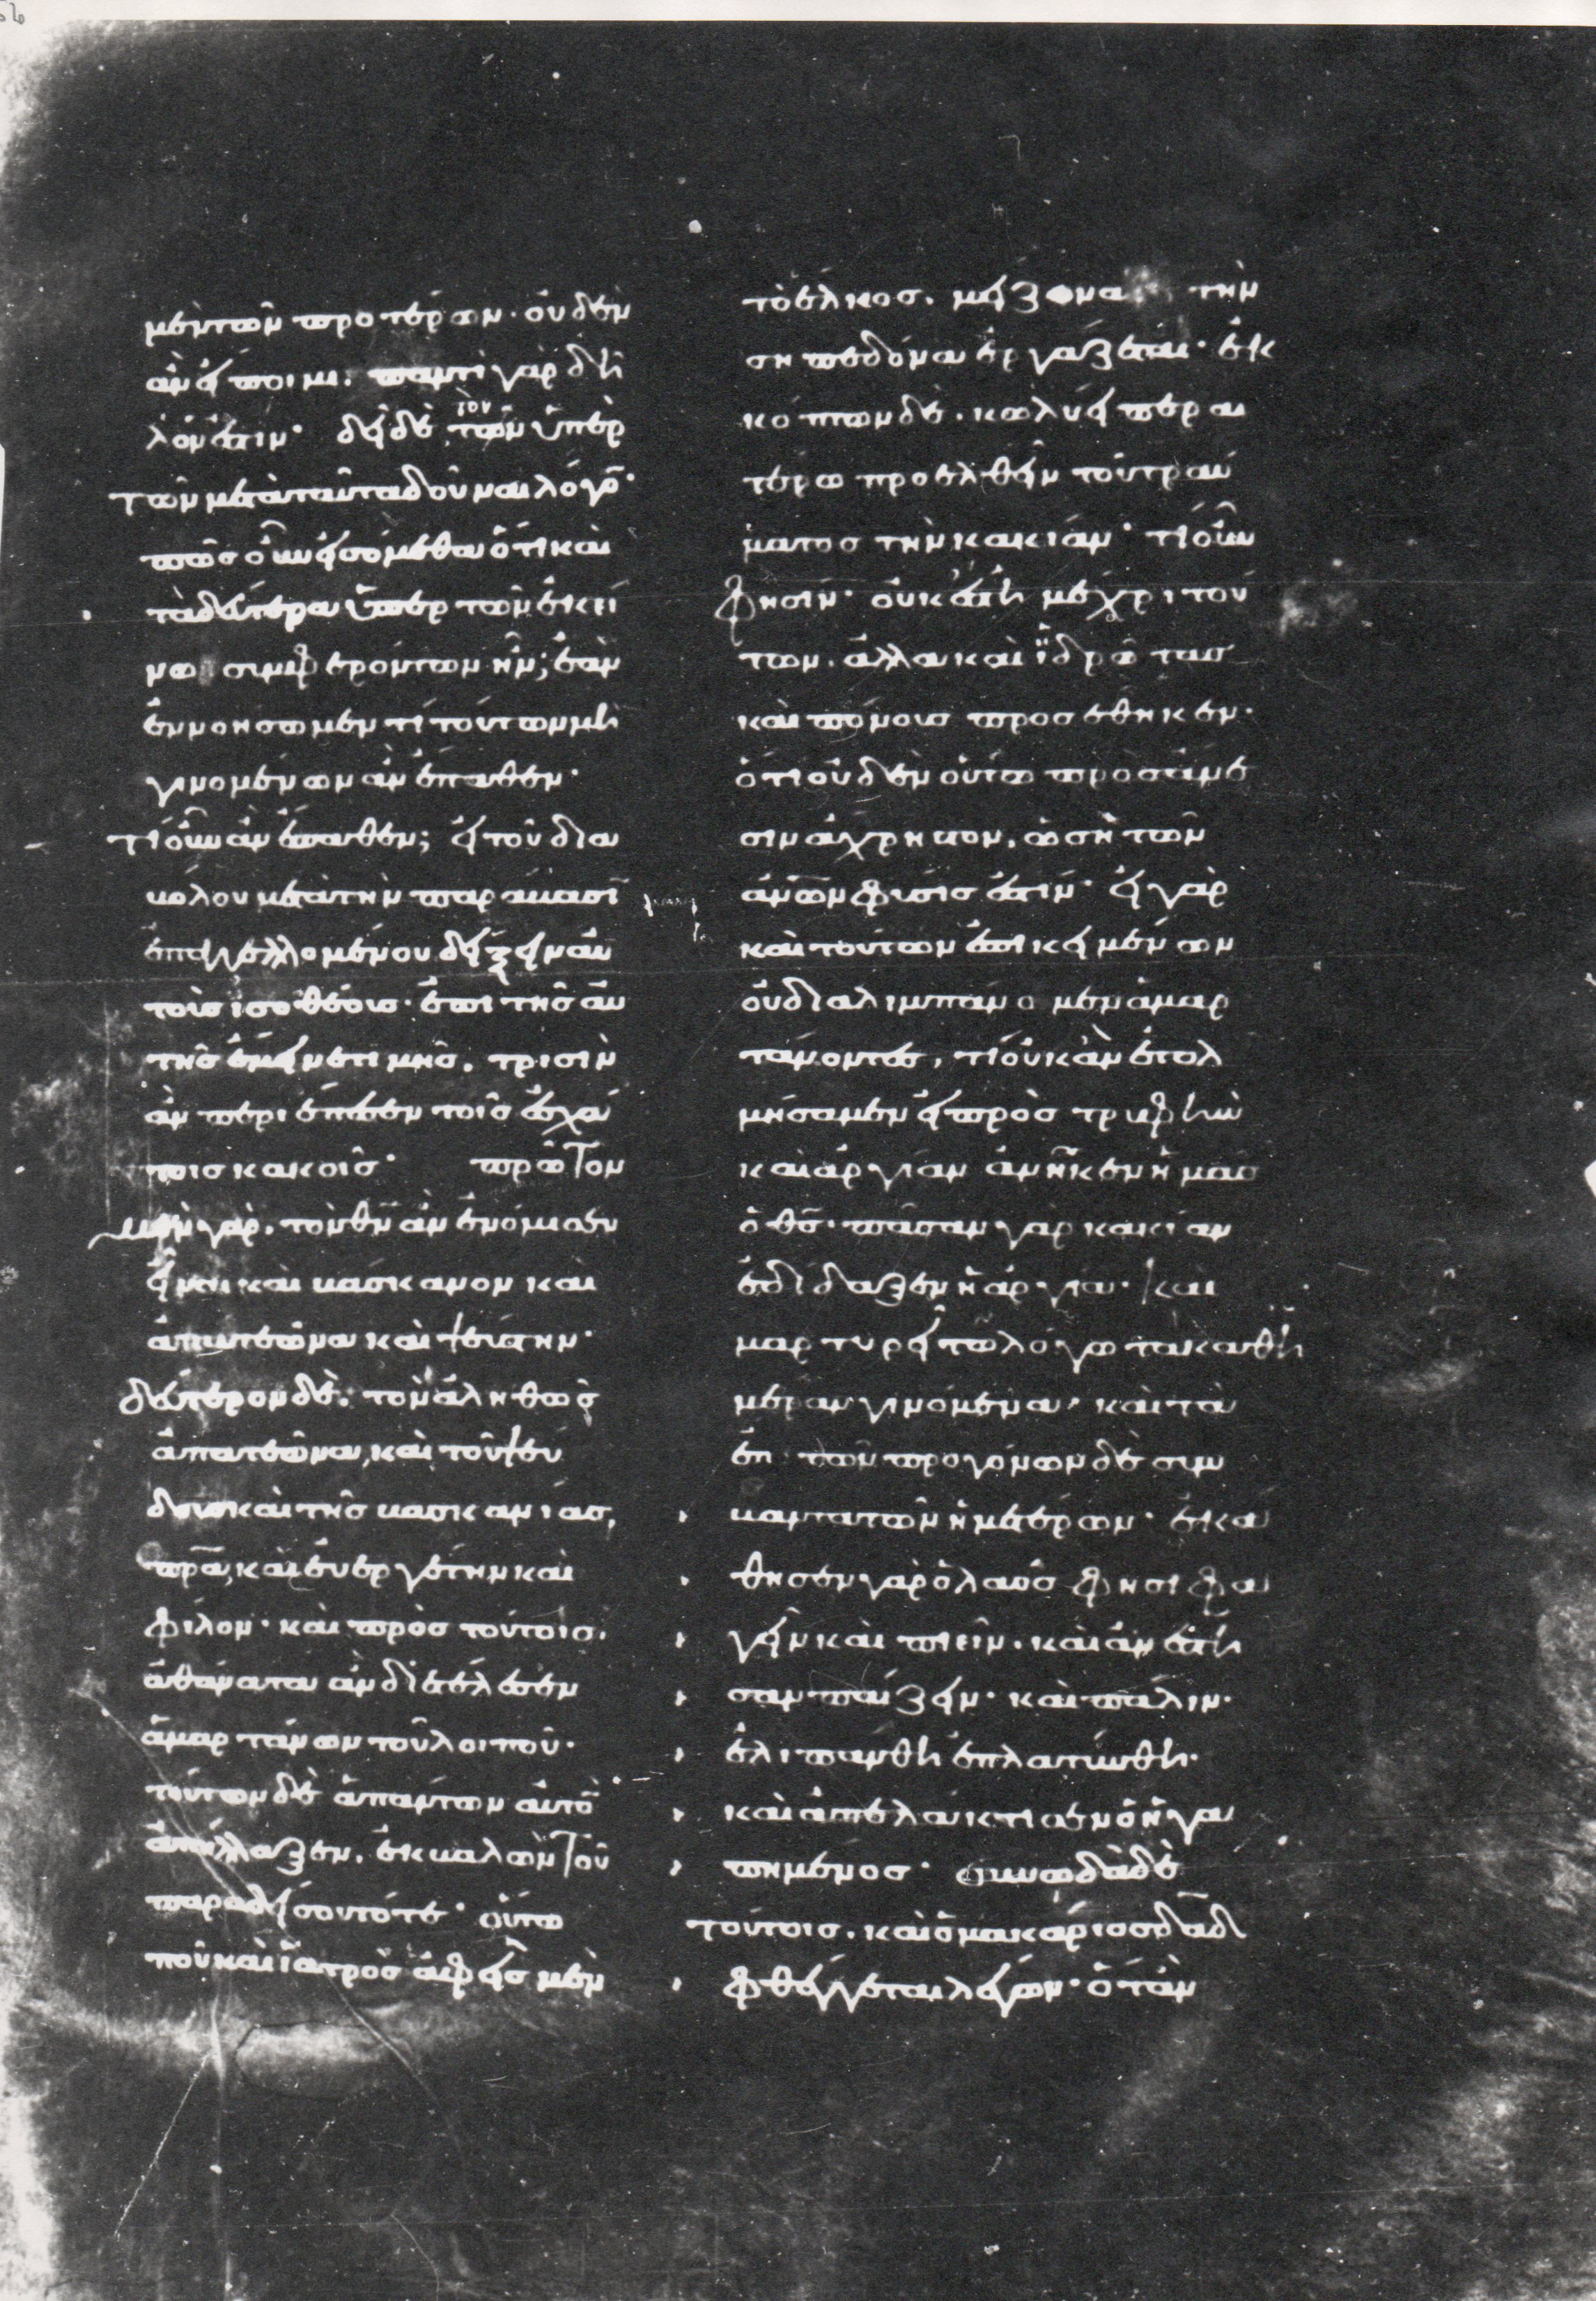 μὲν τῶν προτέρων· οὐδὲν
ἂν εἴποιμι. παντὶ γὰρ δῆ
λόν ἐστιν· δεῖ δὲ τὸν τῶν ὑπὲρ
τῶν μετὰ ταῦτα δοῦναι λόγο̅·
πῶς οὖν εἰσόμεθα ὅτι καὶ
τὰ δεύτερα ὑπὲρ τῶν ἐκεί
νω συμφερόντων ἦν; ἐὰν
ἐννοήσωμεν τί τούτων μὴ
γινομένων ἂν ἔπαθεν·
τί οὖν ἂν ἔπαθεν; εἰ τοῦ δια
βόλου μετὰ τὴν παράβασι̅
ἐπαγγελλομένου δείξειν αὐ
τοὺς ἰσοθέους· ἐπὶ τῆς αὐ
τῆς ἔμεινε τιμῆς. τρισὶν
ἂν περιέπεσεν τοῖς ἐσχά
τοις κακοῖς· πρῶτον
μὲν γὰρ. τὸν θν̅ ἂν ἐνόμισεν
εἶναι καὶ βάσκανον καὶ
ἀπατεῶνα καὶ ψεύστην·
δεύτερον δὲ. τὸν ἀληθῶς
ἀπατεῶνα, καὶ τοῦ ψεύ
δους καὶ τῆς βασκανίας,
πρα̅, καὶ εὐεργέτην καὶ
φίλον· καὶ πρὸς τούτοις.
ἀθάνατα ἂν διετέλεσεν
ἁμαρτάνων τοῦ λοιποῦ·
τούτων δὲ ἁπάντων αὐτὸ̅
ἀπήλλαξεν. ἐκβαλὼν τοῦ
παραδείσου τότε· οὕτω
που καὶ ἰατρὸς ἀφεὶς μὲν
τὸ ἕλκος. μείζονα τὴν
σηπεδόνα ἐργάζεται· ἐκ
κόπτων δὲ. κωλύει περαι
τέρω προελθεῖν τοῦ τραύ
ματος τὴν κακίαν· τί οὖν
φησίν· οὐκ ἔστη μέχρι τού
των. ἀλλὰ καὶ ἱδρῶτας
καὶ πόνους προσέθηκεν·
ὅτι οὐδὲν οὕτω πρὸς ἄνε
σιν ἄχρηστον. ὡς ἡ τῶν
ἀν̅ω̅ν φύσις ἐστίν· εἰ γὰρ
καὶ τούτων ἐπικειμένων
οὐ διαλιμπάνομεν ἁμαρ
τάνοντες, τί οὐκ ἂν ἐτολ
μήσαμεν εἰ πρὸς τρυφὴν
καὶ ἀργίαν ἀνῆκεν ἡμᾶς
ὁ θς̅· πᾶσαν γὰρ κακίαν
ἐδίδαξεν ἡ ἀργία· καὶ
μαρτυρεῖ τῶ λόγω τὰ καθη
μέραν γινόμενα· καὶ τὰ
ἐπὶ τῶν προγόνων δὲ συμ
βάντα τῶν ἡμετέρων· ἐκά
θησεν γὰρ ὁ λαὸς φησὶ φα
γεῖν καὶ πιεῖν. καὶ ἀνέστη
σαν παίζειν· καὶ πάλιν·
ἐλιπάνθη ἐπλατύνθη·
καὶ ἀπελάκτισεν ὁ ἠγα
πημένος· συνωδὰ δὲ
τούτοις. καὶ ὁ μακάριος δα̅δ̅
φθέγγεται λέγων· ὅταν